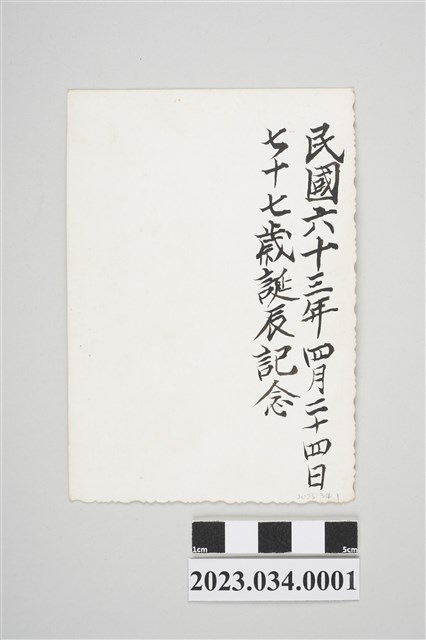 民國六十三年四月二十四日
七十七歲誕辰記念
1cm
5cm
2023.034.0001